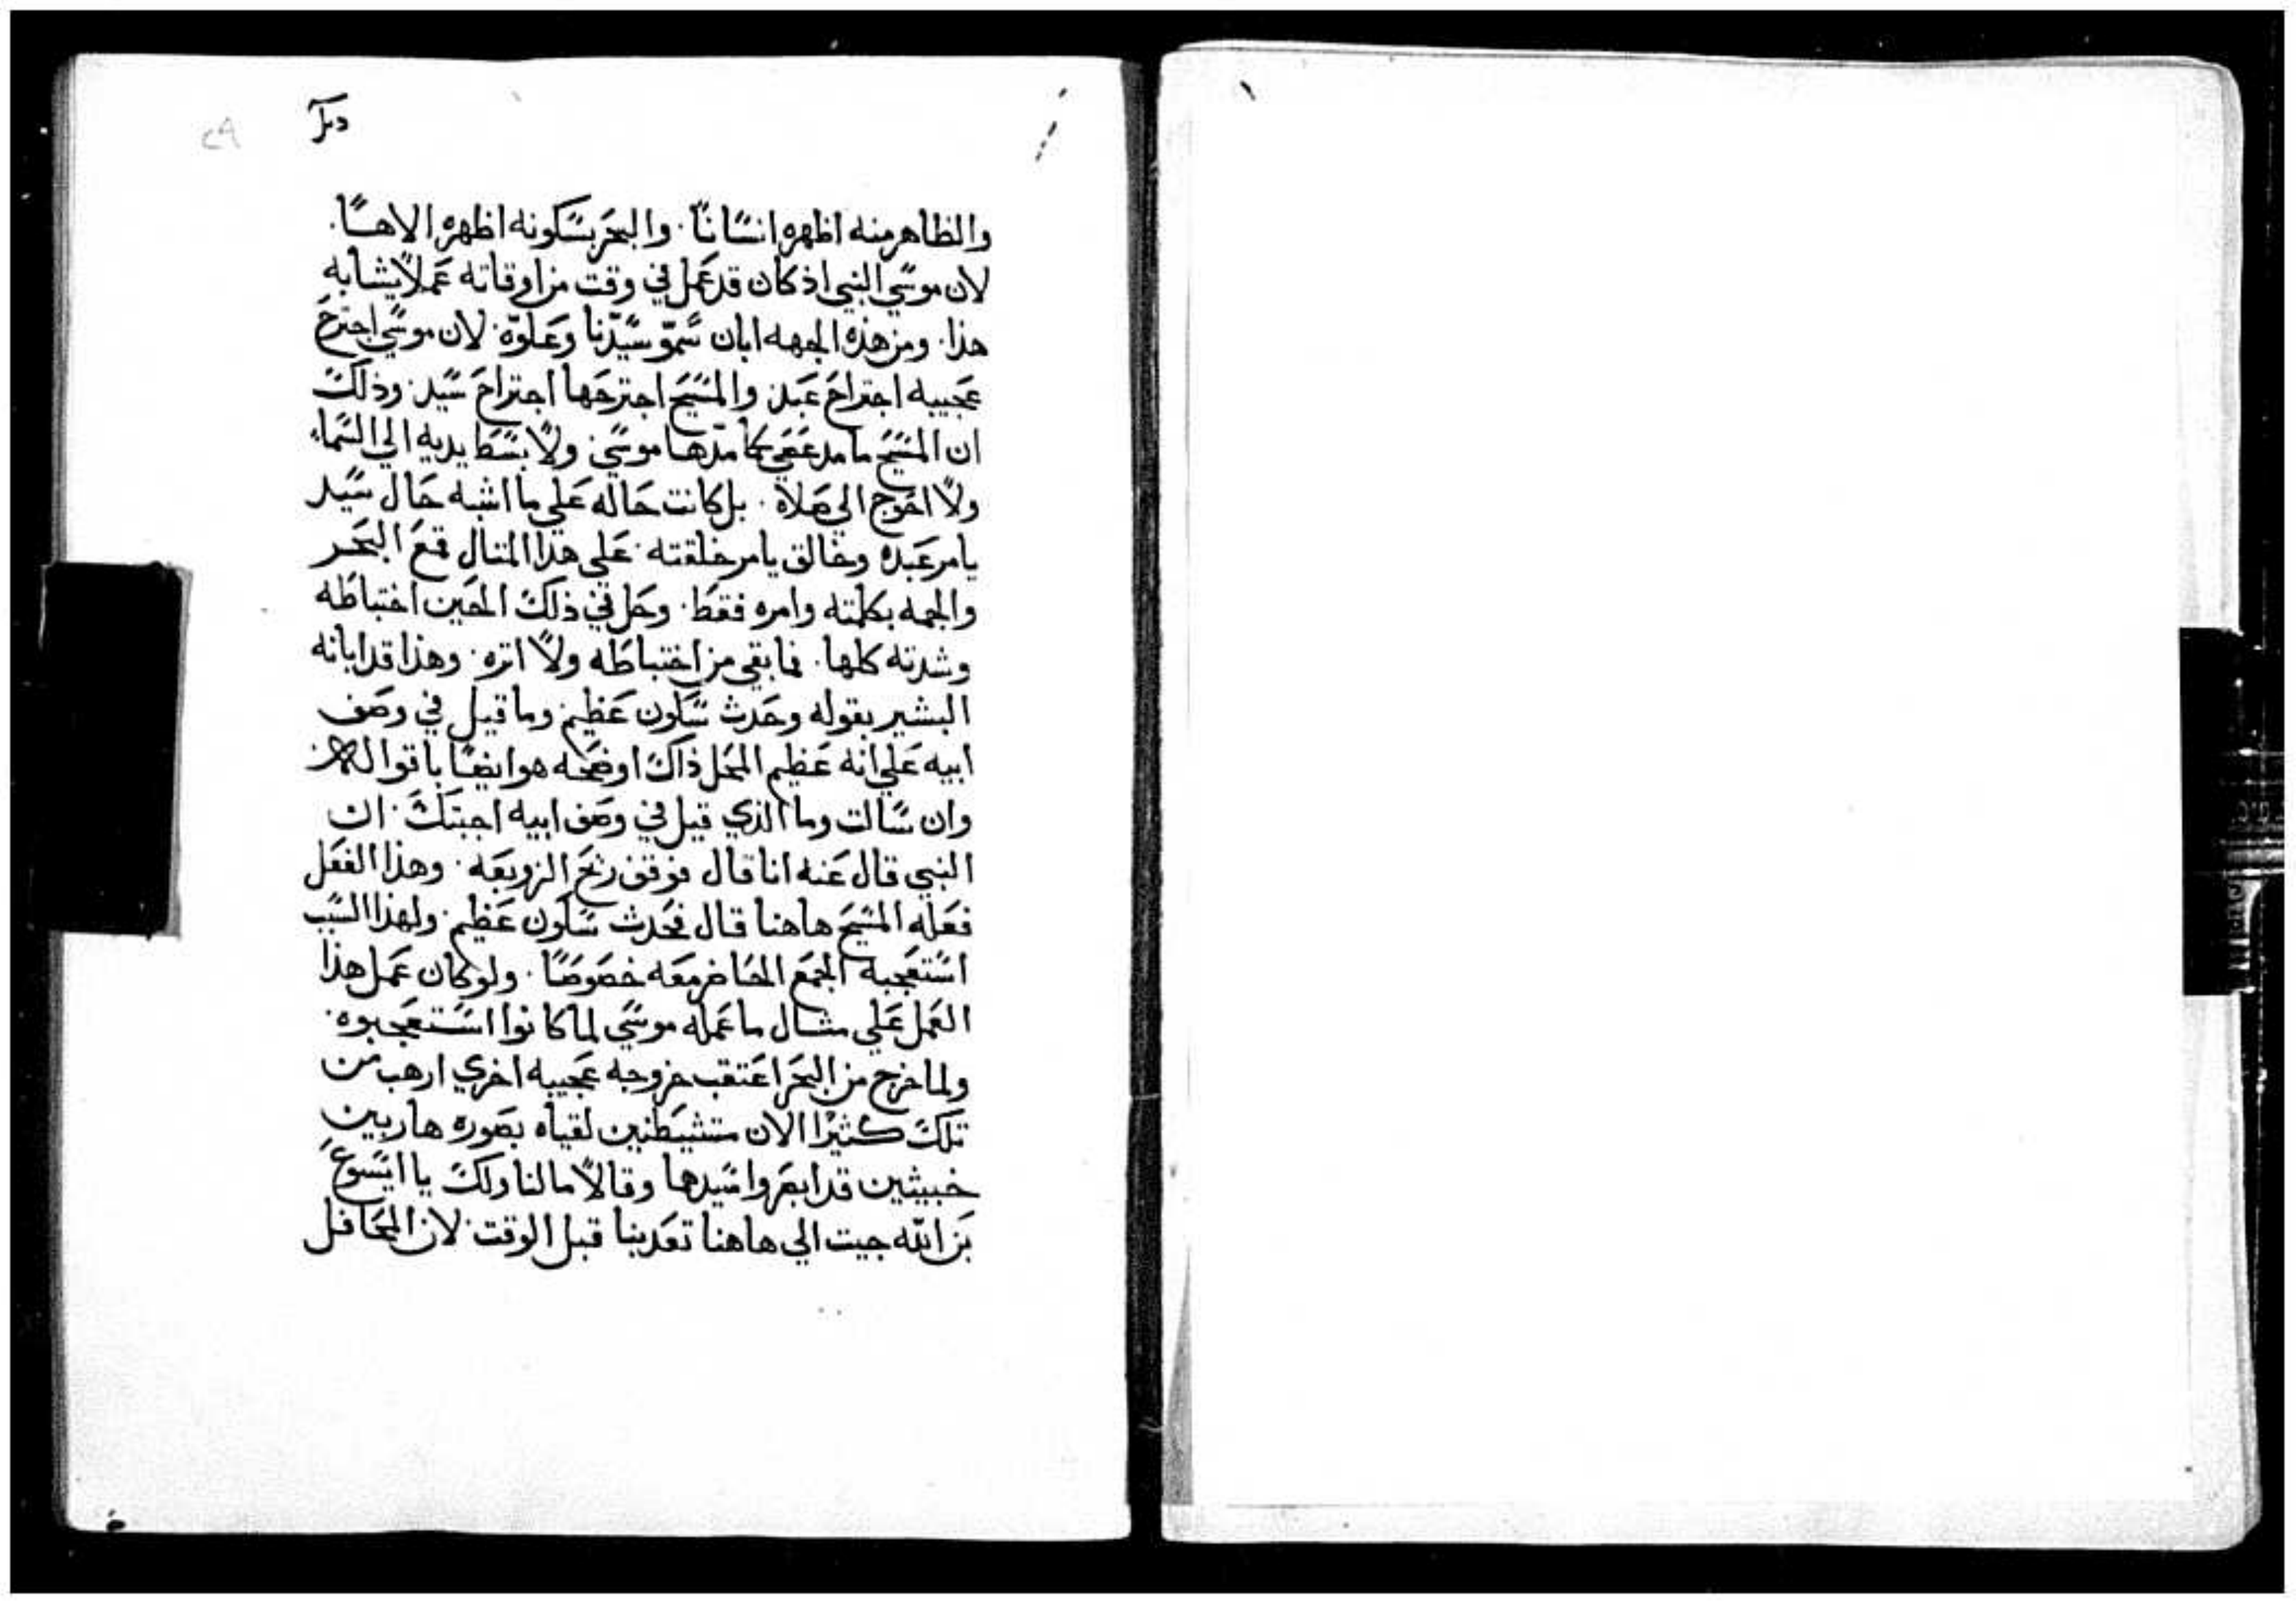 والظاهر منه اظهره انسانا. والبحر بسكونه اظهره الاهًا.
لان موسي النبي اذ كان قد عمل في وقت من اوقاته عملاً يشابه
هذا. ومن هذه الجهه ابان سموّ سيّدنا وعلوّه. لان موسي اجترح
عجيبه اجتراح عبد. والمسيح اجترحها اجتراح سيد. وذلك
ان المسيح ما مد عصي كما مدّها موسي. ولا بسط يديه الي السماء
ولا احوج الي صلاه. بل كانت حاله علي ما اشبه حال سيد
يامر عبده وخالق يامر خلقته. علي هذا المثال قمع البحر
والجمه بكلمته وامره فقط. وحل في ذلك الحين اختباطه
وشدته كلها. فما بقي من اختباطه ولا اثره. وهذا قد ابانه
البشير بقوله وحدث سكون عظيم. وما قيل في وصف
ابيه علي انه عظيم المحل ذاك اوضحه هو ايضًا باقواله
وان سالت وما الذي قيل في وصف ابيه اجبتك. ان
النبي قال عنه انا قال فوقف ريح الزوبعه. وهذا الفعل
فعله المسيح هاهنا قال فحدث سكون عظيم. ولهذا السبب
استعجبه الجمع الحاضر معه خصوصًا. ولو كان عمل هذا
العمل علي مثال ما عمله موسي لما كانوا استعجبوه.
ولما خرج من البحر اعتقب خروجه عجيبه اخري ارهب من
تلك كثيرًا الان متشيطنين لقياه بصوره هاربين
خبيثين قد ابصروا سيدها وقالا مالنا ولك يا ايسوع
بن الله جيت الي هاهنا تعذبنا قبل الوقت. لان المحافل